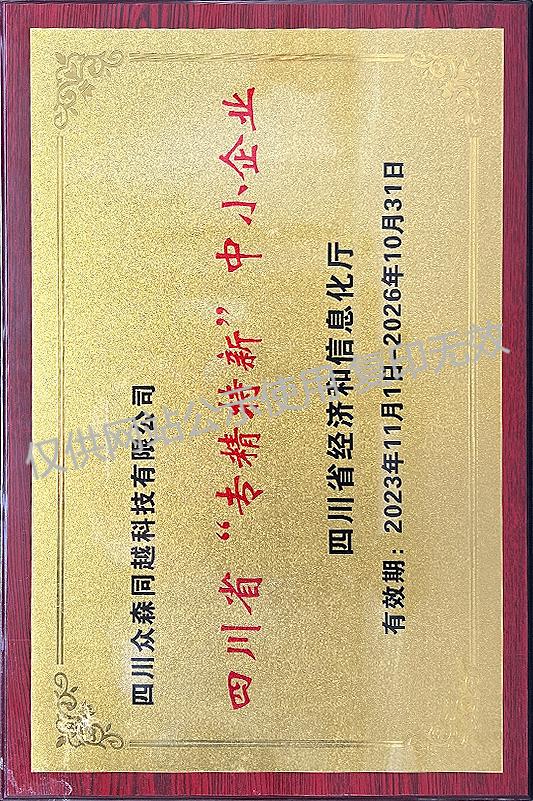 四川众森同越科技有限公司
四川省“专精特新”中小企业
四川省经济和信息化厅
有效期：2023年11月1日-2026年10月31日
仅供网站公示使用复印无效